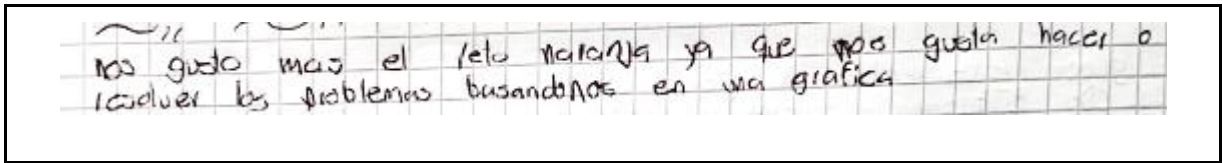 nos gusto mas el reto naranja ya que nos gusta hacer o
resolver los problemas basandonos en una grafica